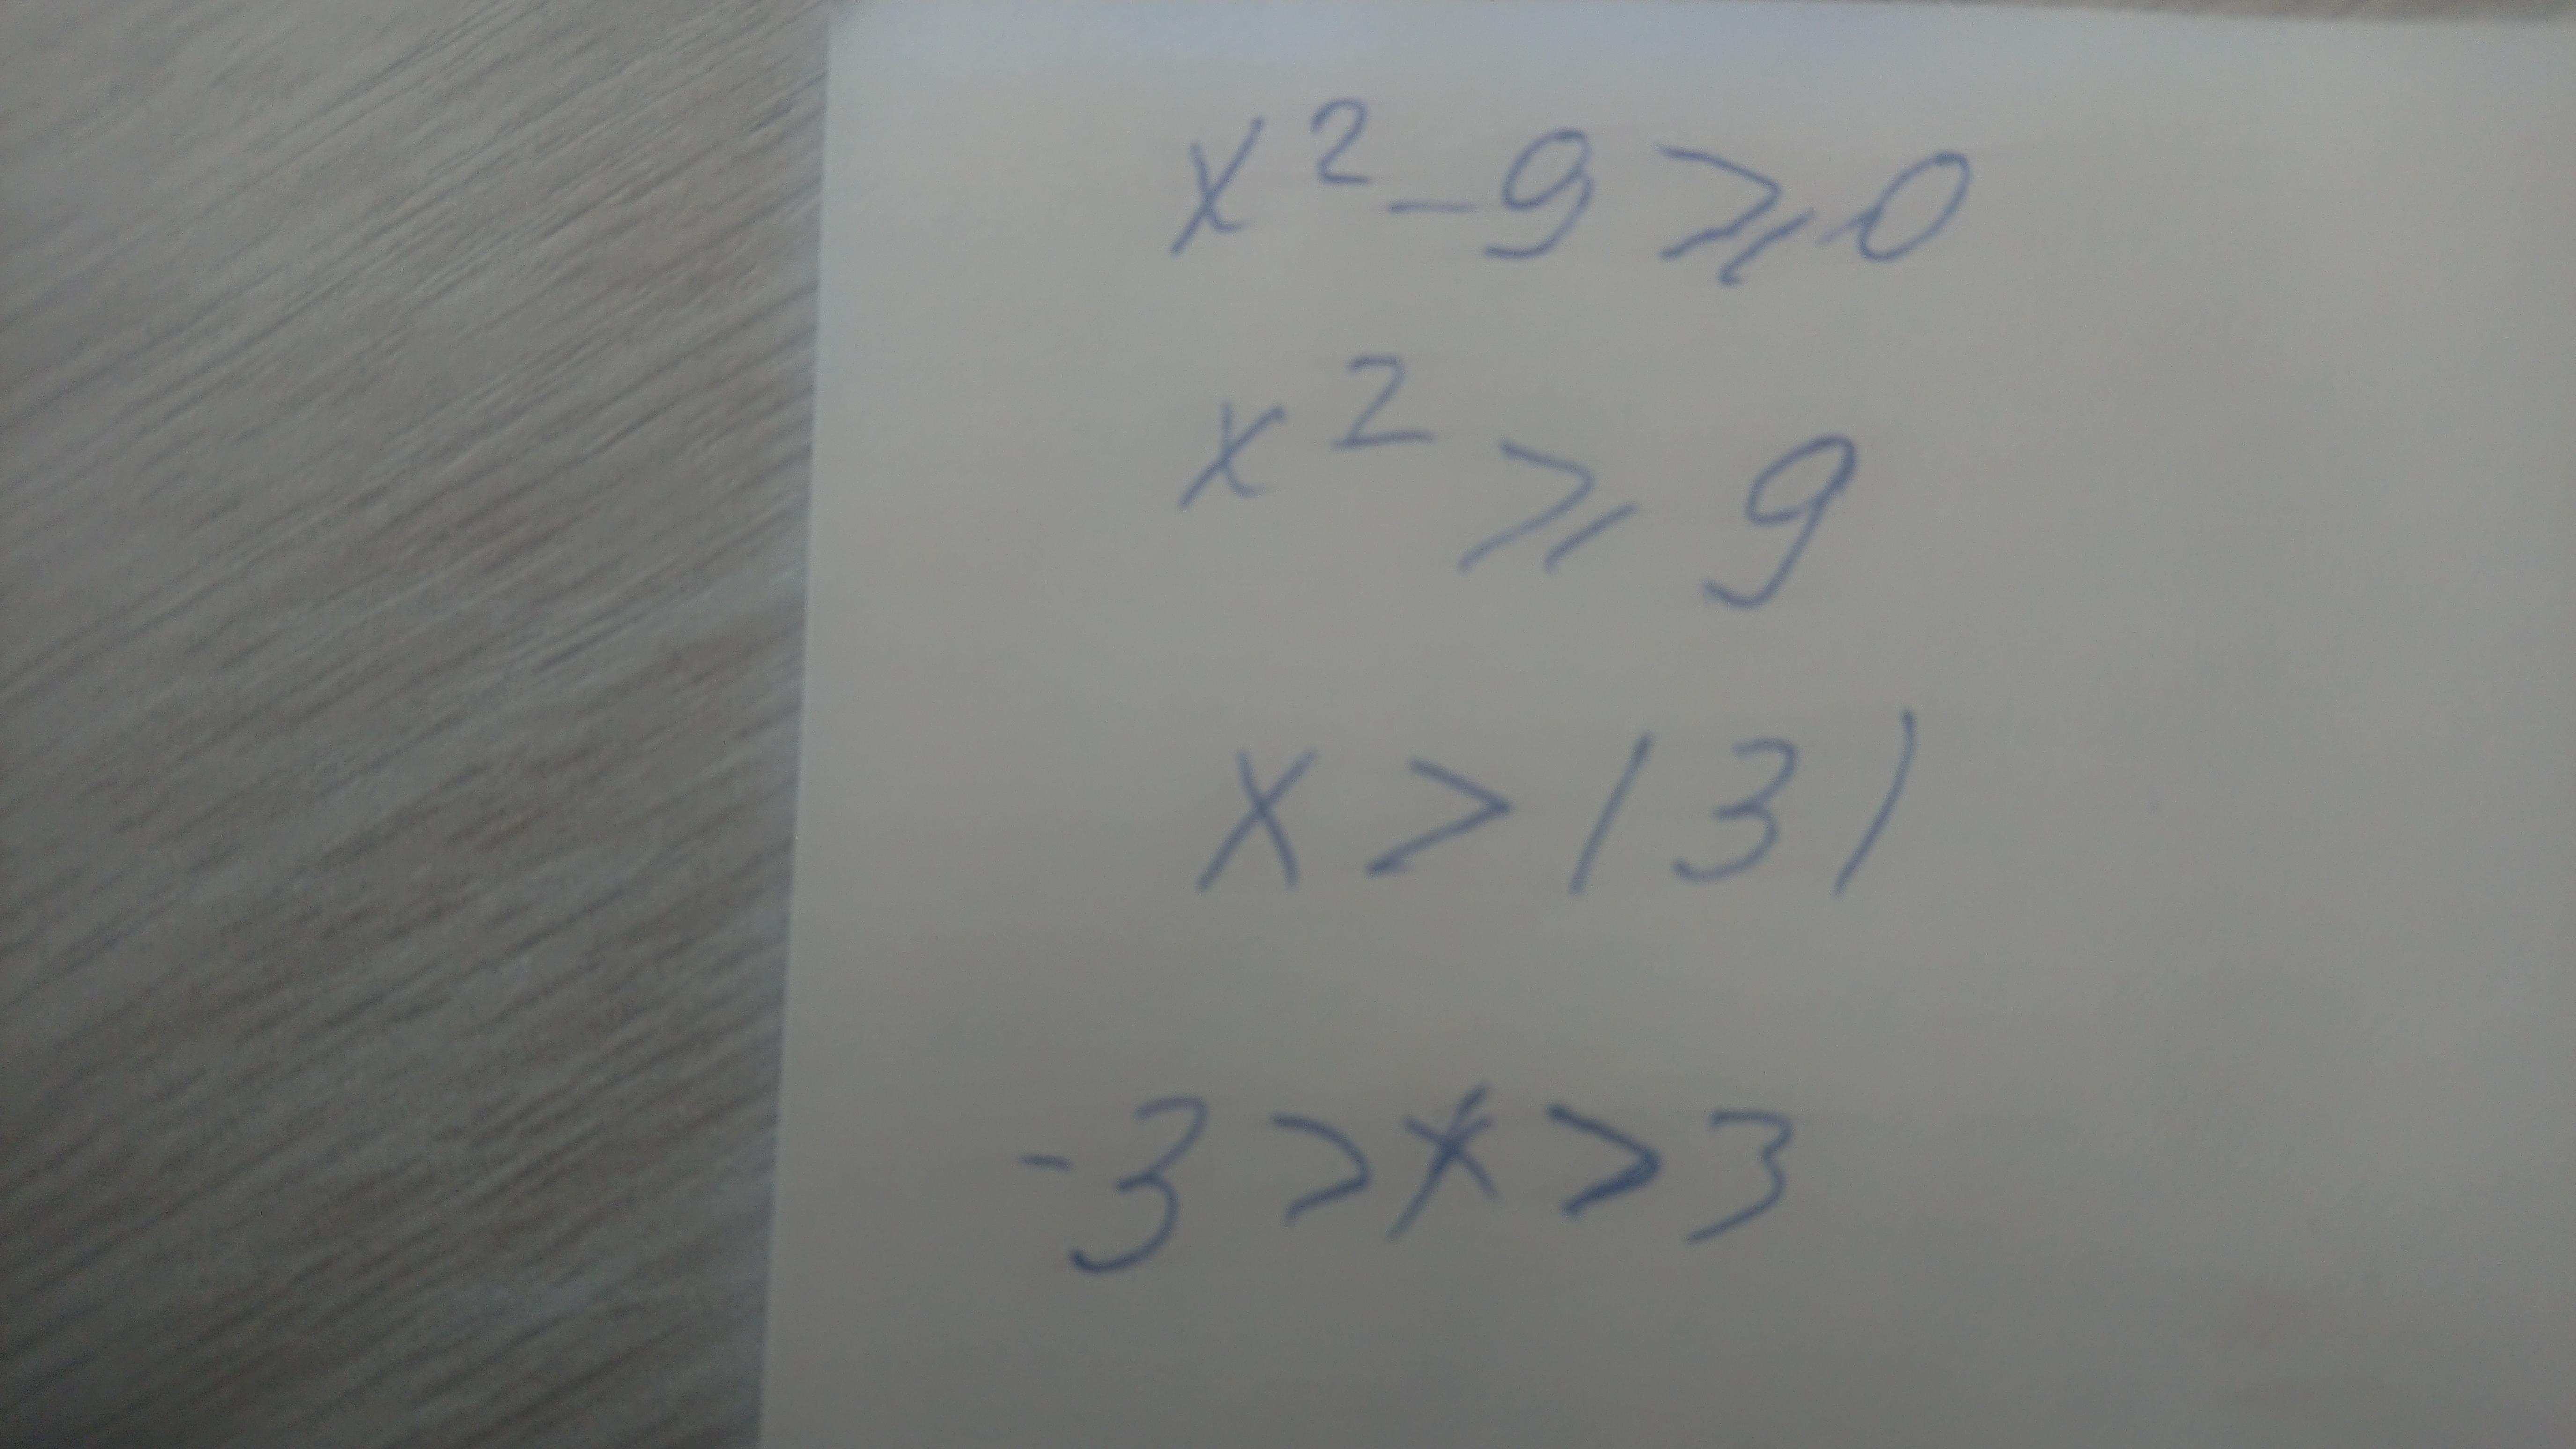 x² - 9 ⩾ 0
x² ⩾ 9
x > |3|
-3 > x > 3